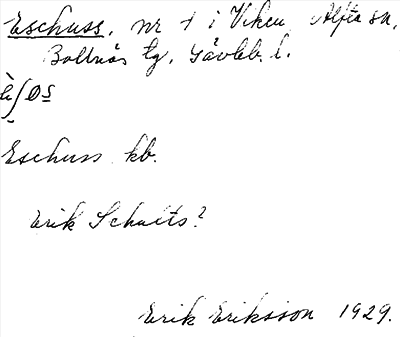 Eschuss, nr 1 i Viken, Alfta sn,
Bollnäs tg, Gävleb. l.
Eschuss kb.
Erik Schults?
Erik Eriksson 1929.